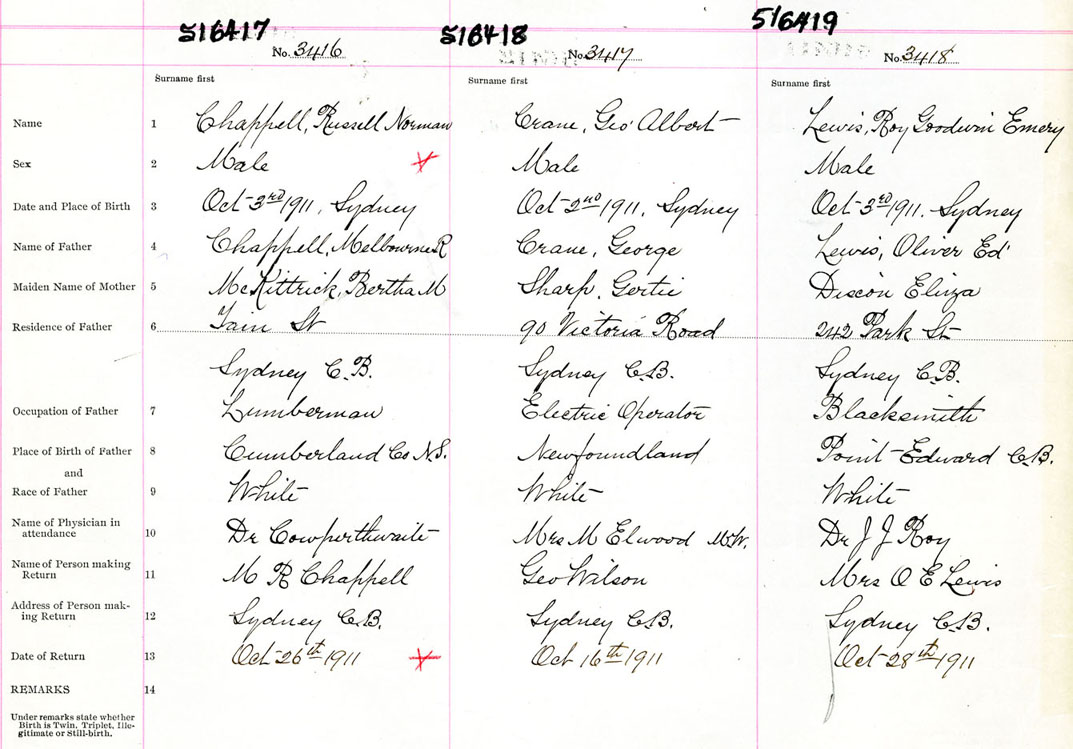 516417 516418 516419
No. 3416 No. 3417 No. 3418
Surname first Surname first Surname first
Name 1 Chappell, Russell Norman Crane, Geo Albert Lewis, Roy Goodwin Emery
Sex 2 Male Male Male
Date and Place of Birth 3 Oct 3rd 1911, Sydney Oct 2nd 1911, Sydney Oct 3rd 1911. Sydney
Name of Father 4 Chappell, Melbourne R Crane, George Lewis, Oliver Ed
Maiden Name of Mother 5 McKittrick, Bertha M Sharp, Gertie Eliza
Residence of Father 6 St 90 Victoria Road 242 Park St
Sydney C.B. Sydney C.B. Sydney C.B.
Occupation of Father 7 Lumberman Electric Operator Blacksmith
Place of Birth of Father 8 Cumberland Co N.S. Newfoundland Point Edward C.B.
and
Race of Father 9 White White White
Name of Physician in
attendance 10 Dr Cowperthwaite Mrs M Elwood M.W. Dr J J Roy
Name of Person making
Return 11 M R Chappell Geo Wilson Mrs O E Lewis
Address of Person mak-
ing Return 12 Sydney C.B. Sydney C.B. Sydney C.B.
Date of Return 13 Oct 26th 1911 Oct 16th 1911 Oct 28th 1911
REMARKS 14
Under remarks state whether
Birth is Twin, Triplet, Ille-
gitimate or Still-birth.